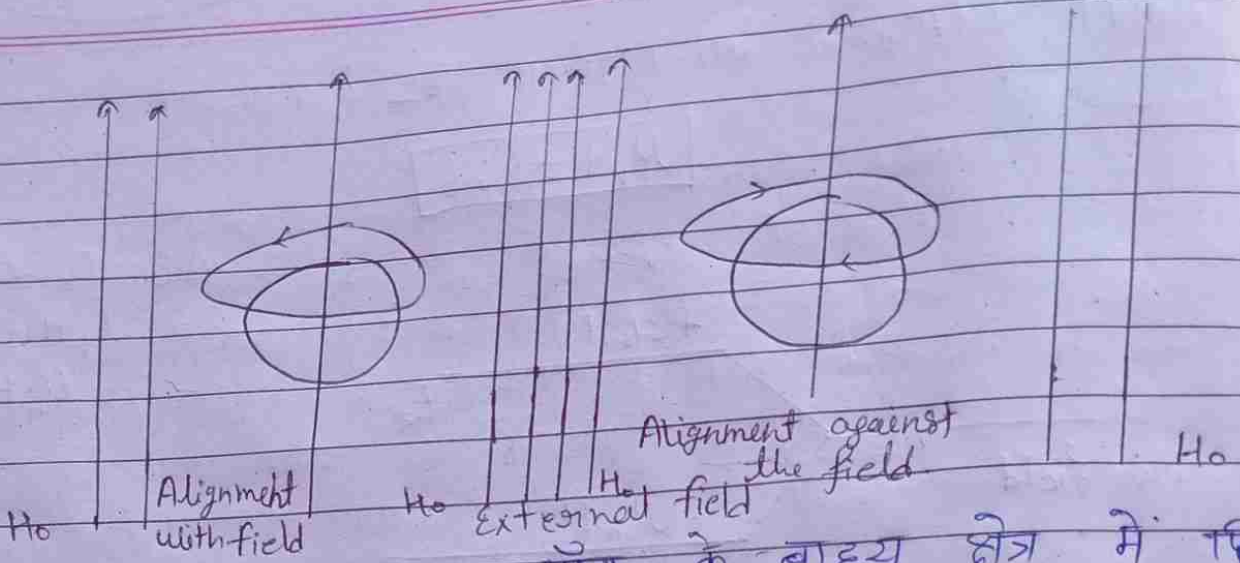 Alignment
with field
Ho
Ho
Ho
External field
Alignment against
the field
Ho
के बाह्य क्षेत्र में